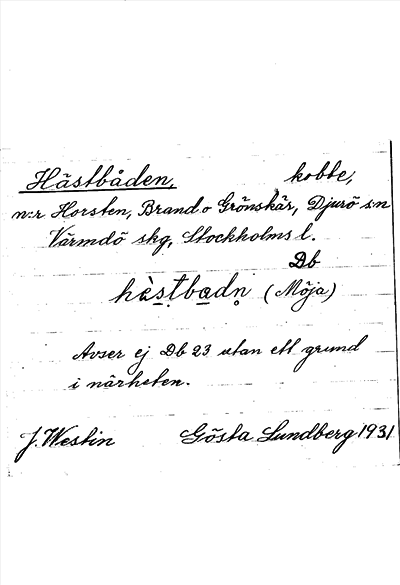 Hästbåden, kobbe,
n:r Horsten, Brand o Grönskär, Djurö s:n
Värmdö skg, Stockholms l.
Db
hὲṣtbadn̥ (Möja)
Avser ej Db 23 utan ett grund
i närheten.
J. Westin Gösta Lundberg 1931